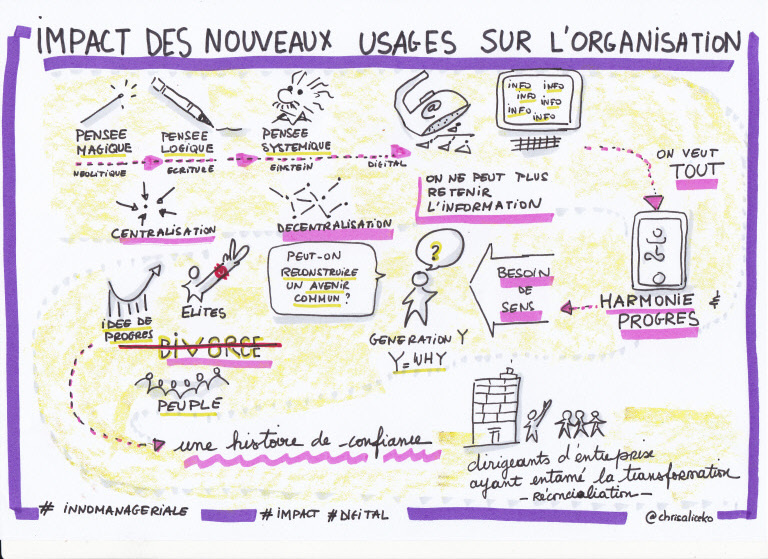 IMPACT DES NOUVEAUX USAGES SUR L'ORGANISATION
PENSEE
MAGIQUE
PENSEE
LOGIQUE
PENSEE
SYSTEMIQUE
NEOLITIQUE
ECRITURE
EINSTEIN
DIGITAL
@
INFO INFO
INFO INFO
INFO
INFO
ON VEUT
TOUT
CENTRALISATION
DECENTRALISATION
ON NE PEUT PLUS
RETENIR
L'INFORMATION
HARMONIE &
PROGRES
BESOIN
DE
SENS
?
GENERATION Y
Y=WHY
PEUT-ON
RECONSTRUIRE
UN AVENIR
COMMUN ?
IDEE DE
PROGRES
ELITES
DIVORCE
PEUPLE
une histoire de confiance
dirigeants d'entreprise
ayant entamé la transformation
- réconciliation -
# INNOMANAGERIALE
# IMPACT # DIGITAL
@chrisaliceko